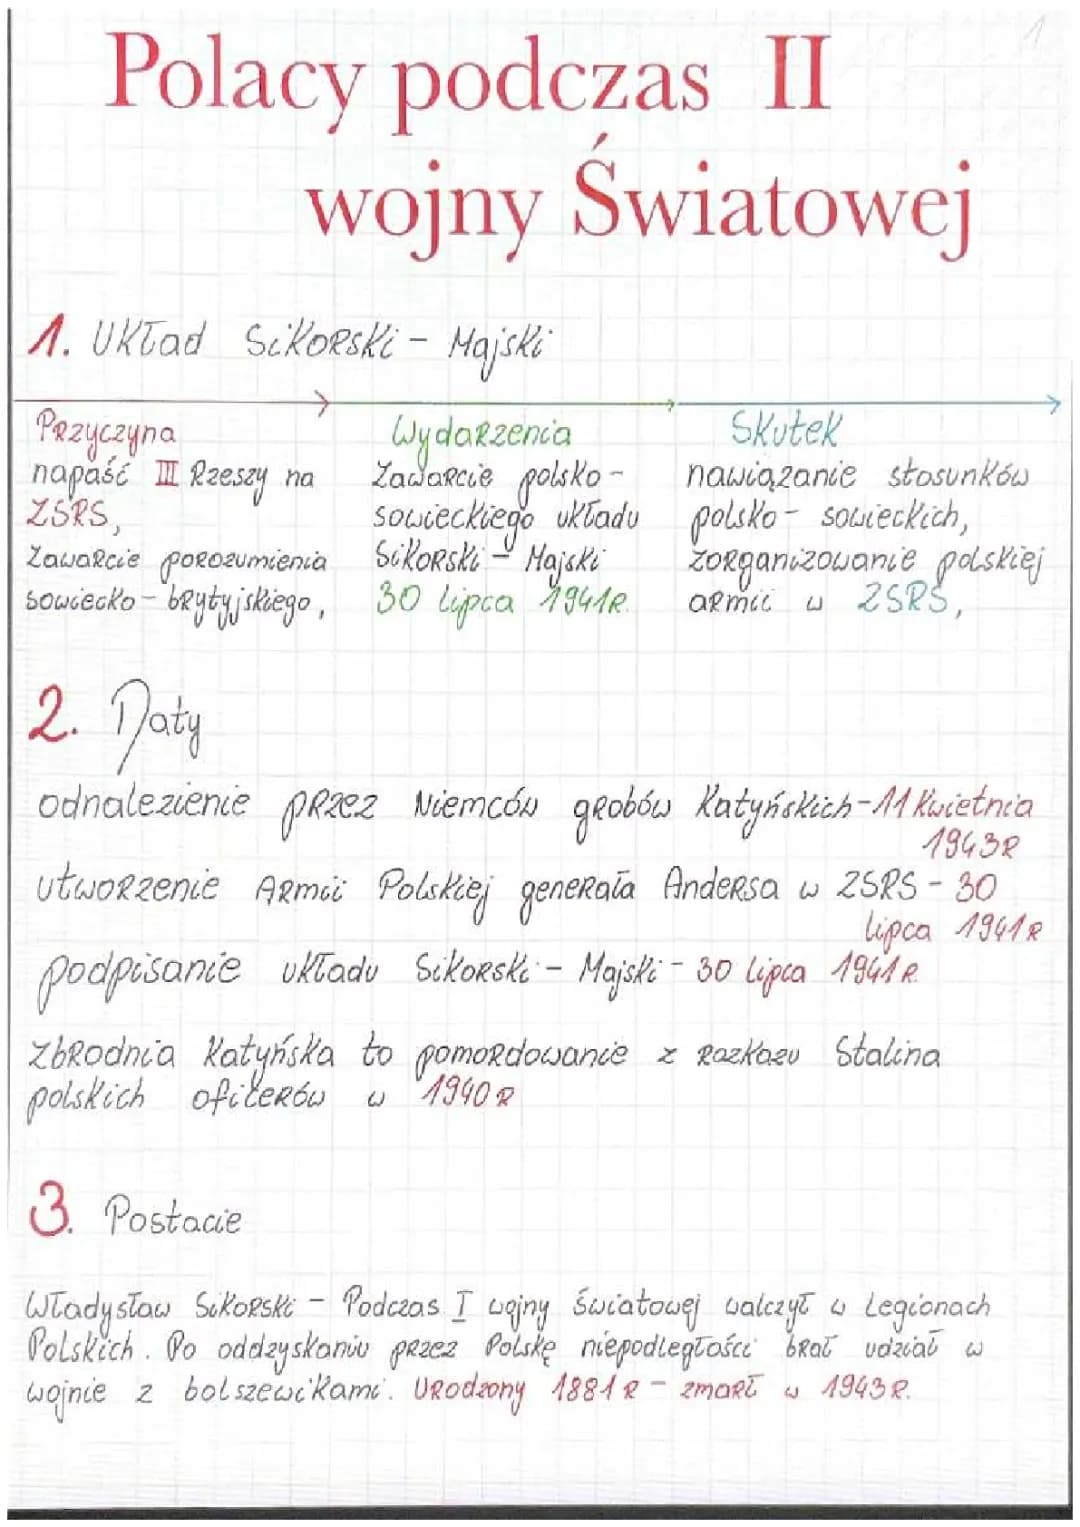 1
Polacy podczas II
wojny Światowej
1. Układ Sikorski - Majski
Przyczyna
napaść III Rzeszy na
ZSRS,
zawarcie porozumienia
sowiecko - brytyjskiego,
Wydarzenia
Zawarcie polsko -
sowieckiego układu
Sikorski - Majski
30 lipca 1941r.
Skutek
nawiązanie stosunków
polsko - sowieckich,
zorganizowanie polskiej
armii w ZSRS,
2. Daty
odnalezienie przez Niemców grobów Katyńskich - 11 Kwietnia
1943r
utworzenie Armii Polskiej generała Andersa w ZSRS - 30
lipca 1941r
podpisanie układu Sikorski - Majski - 30 lipca 1941r.
Zbrodnia Katyńska to pomordowanie z rozkazu Stalina
polskich oficerów w 1940r
3. Postacie
Władysław Sikorski - Podczas I wojny światowej walczył w Legionach
Polskich. Po oddzyskaniu przez Polskę niepodległości brał udział w
wojnie z bolszewikami. Urodzony 1881r - zmarł w 1943r.